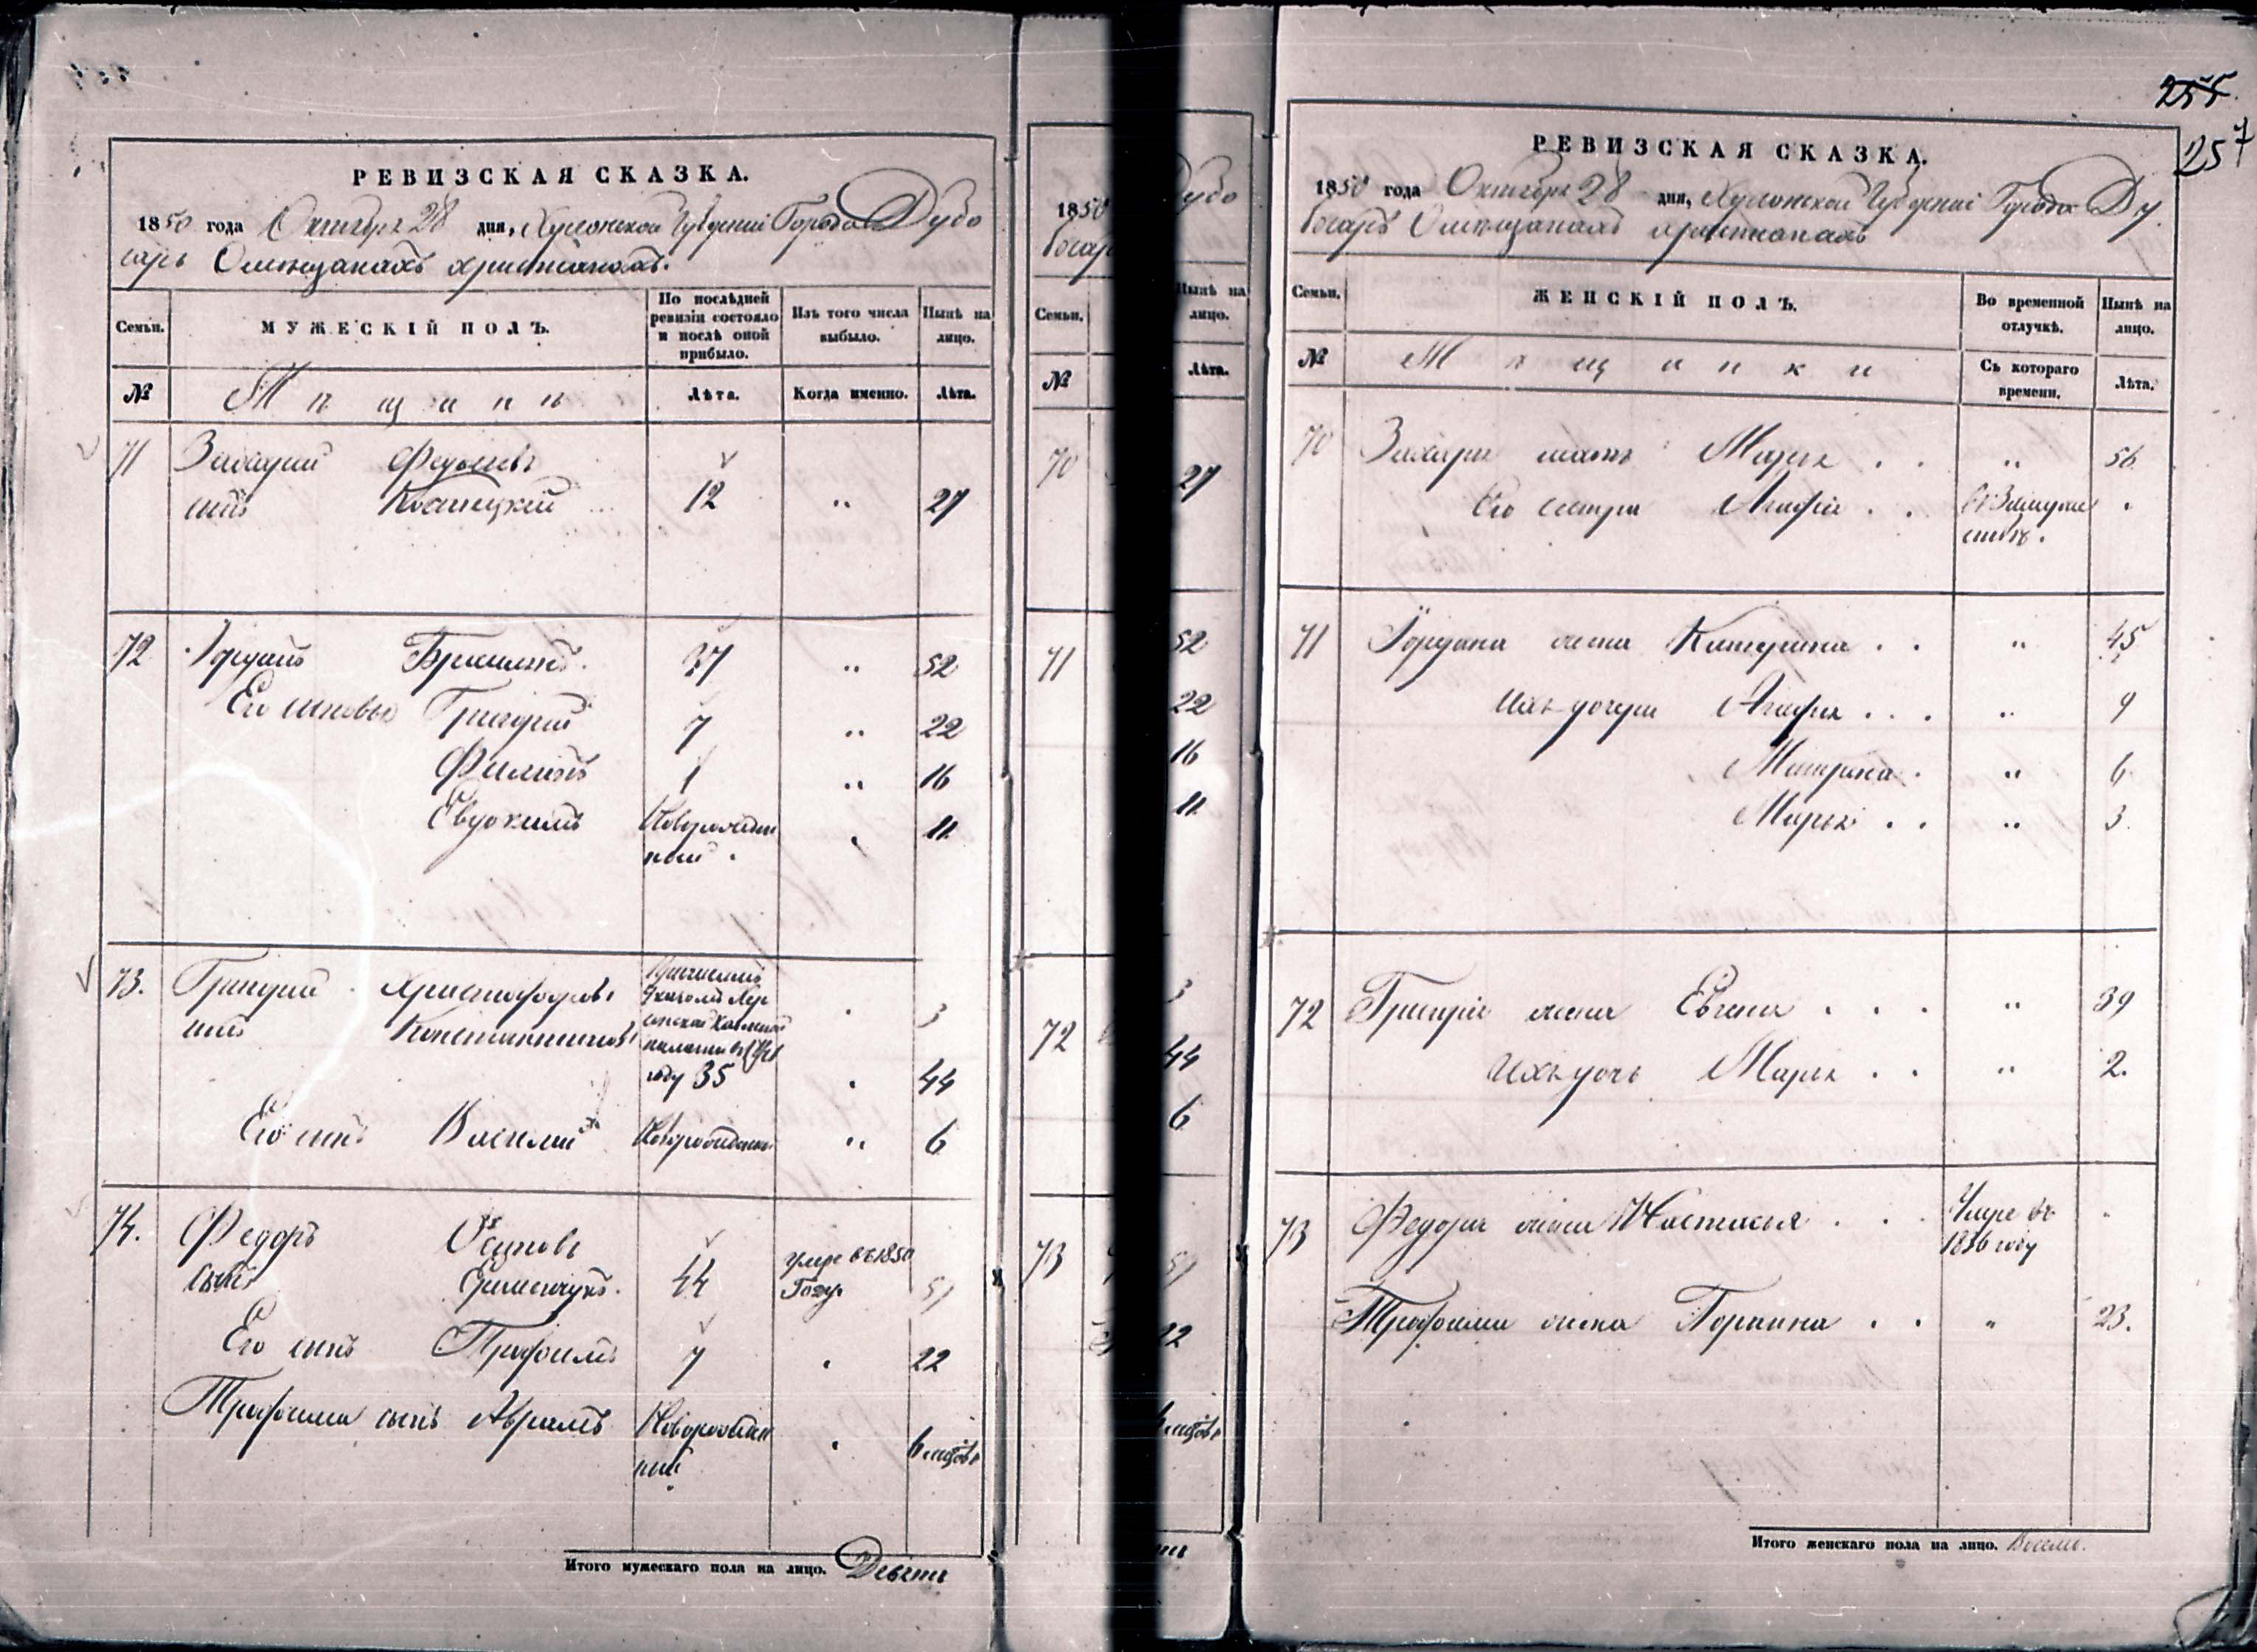 РЕВИЗСКАЯ СКАЗКА.
1850 года Октября 28 дня, Херсонской Губерніи Города Дубо
саръ Омѣщанахъ христіанахъ.
Семьи.
МУЖЕСКІЙ ПОЛЪ.
По послѣдней
ревизіи состояло
и послѣ оной
прибыло.
Изъ того числа
выбыло.
Нынѣ на
лицо.
№
Мѣщане
Лѣта.
Когда именно.
Лѣта.
71 Захарий
сынъ 12 „ 27
72 Бришанъ 37 „ 52
Его сыновья Григорий 7 „ 22
Филипъ 1 „ 16
Евдокимъ Новорожден 11
ный
73. Григорий Христофоровъ
сынъ Константиновъ
году 35 44
Его сынъ Василий Новорожденный „ 6
74. Федоръ Осиповъ
сынъ 44 умре въ 1850 51
Году
Его сынъ Трофимъ 7 22
Трофима сынъ Аврамъ Новорожден 6 мѣсяцовъ
ный
Итого мужескаго пола на лицо. Девять
1850
Дубо
босар
Семьи.
№
Нынѣ на
лицо.
Лѣта.
70 27
71 52
22
16
11
3
72 44
6
73 51
22
255
257
РЕВИЗСКАЯ СКАЗКА.
1850 года Октября 28 дня, Херсонской Губерніи Города Ду
босаръ Омѣщанахъ христіанахъ
Семьи.
ЖЕНСКІЙ ПОЛЪ.
Во временной
отлучкѣ.
Нынѣ на
лицо.
№
Мѣщанки
Съ котораго
времени.
Лѣта.
70 Захария мать Марья „ 56
Его сестра Агафія въ Замуже
ствѣ.
71 Іордана жена Катерина „ 45
Ихъ дочери Агафья „ 9
Матрена „ 6
Марья „ 3
72 Григорія жена Евгения „ 39
Ихъ дочь Марья „ 2.
73 Федора жена Настасья Умре въ
1836 году
Трофима жена Горпина „ 23.
Итого женскаго пола на лицо. Восемь.